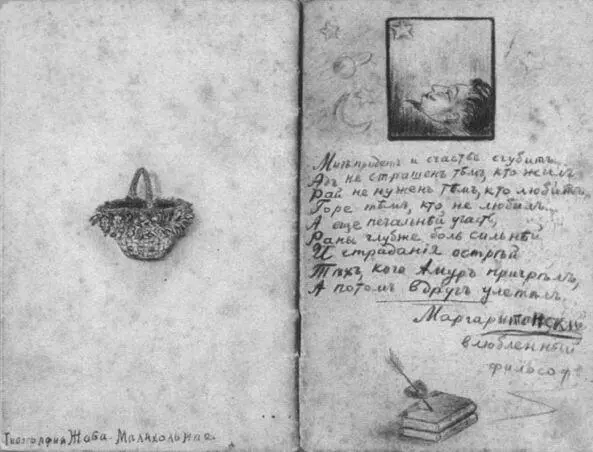 Типографія Жаба-Малихольная.
Мигъ придетъ и счастье сгубитъ,
Адъ не страшенъ тѣмъ, кто жилъ
Рай не нуженъ тѣмъ, кто любитъ,
Горе тѣмъ, кто не любилъ..
А еще печальнѣй участь,
Раны глубже боль сильнѣй
И страданія острѣй
Тѣхъ, кого Амуръ пригрѣлъ,
А потомъ вдругъ улетѣлъ.
Маргаритонскій
влюбленный
философъ